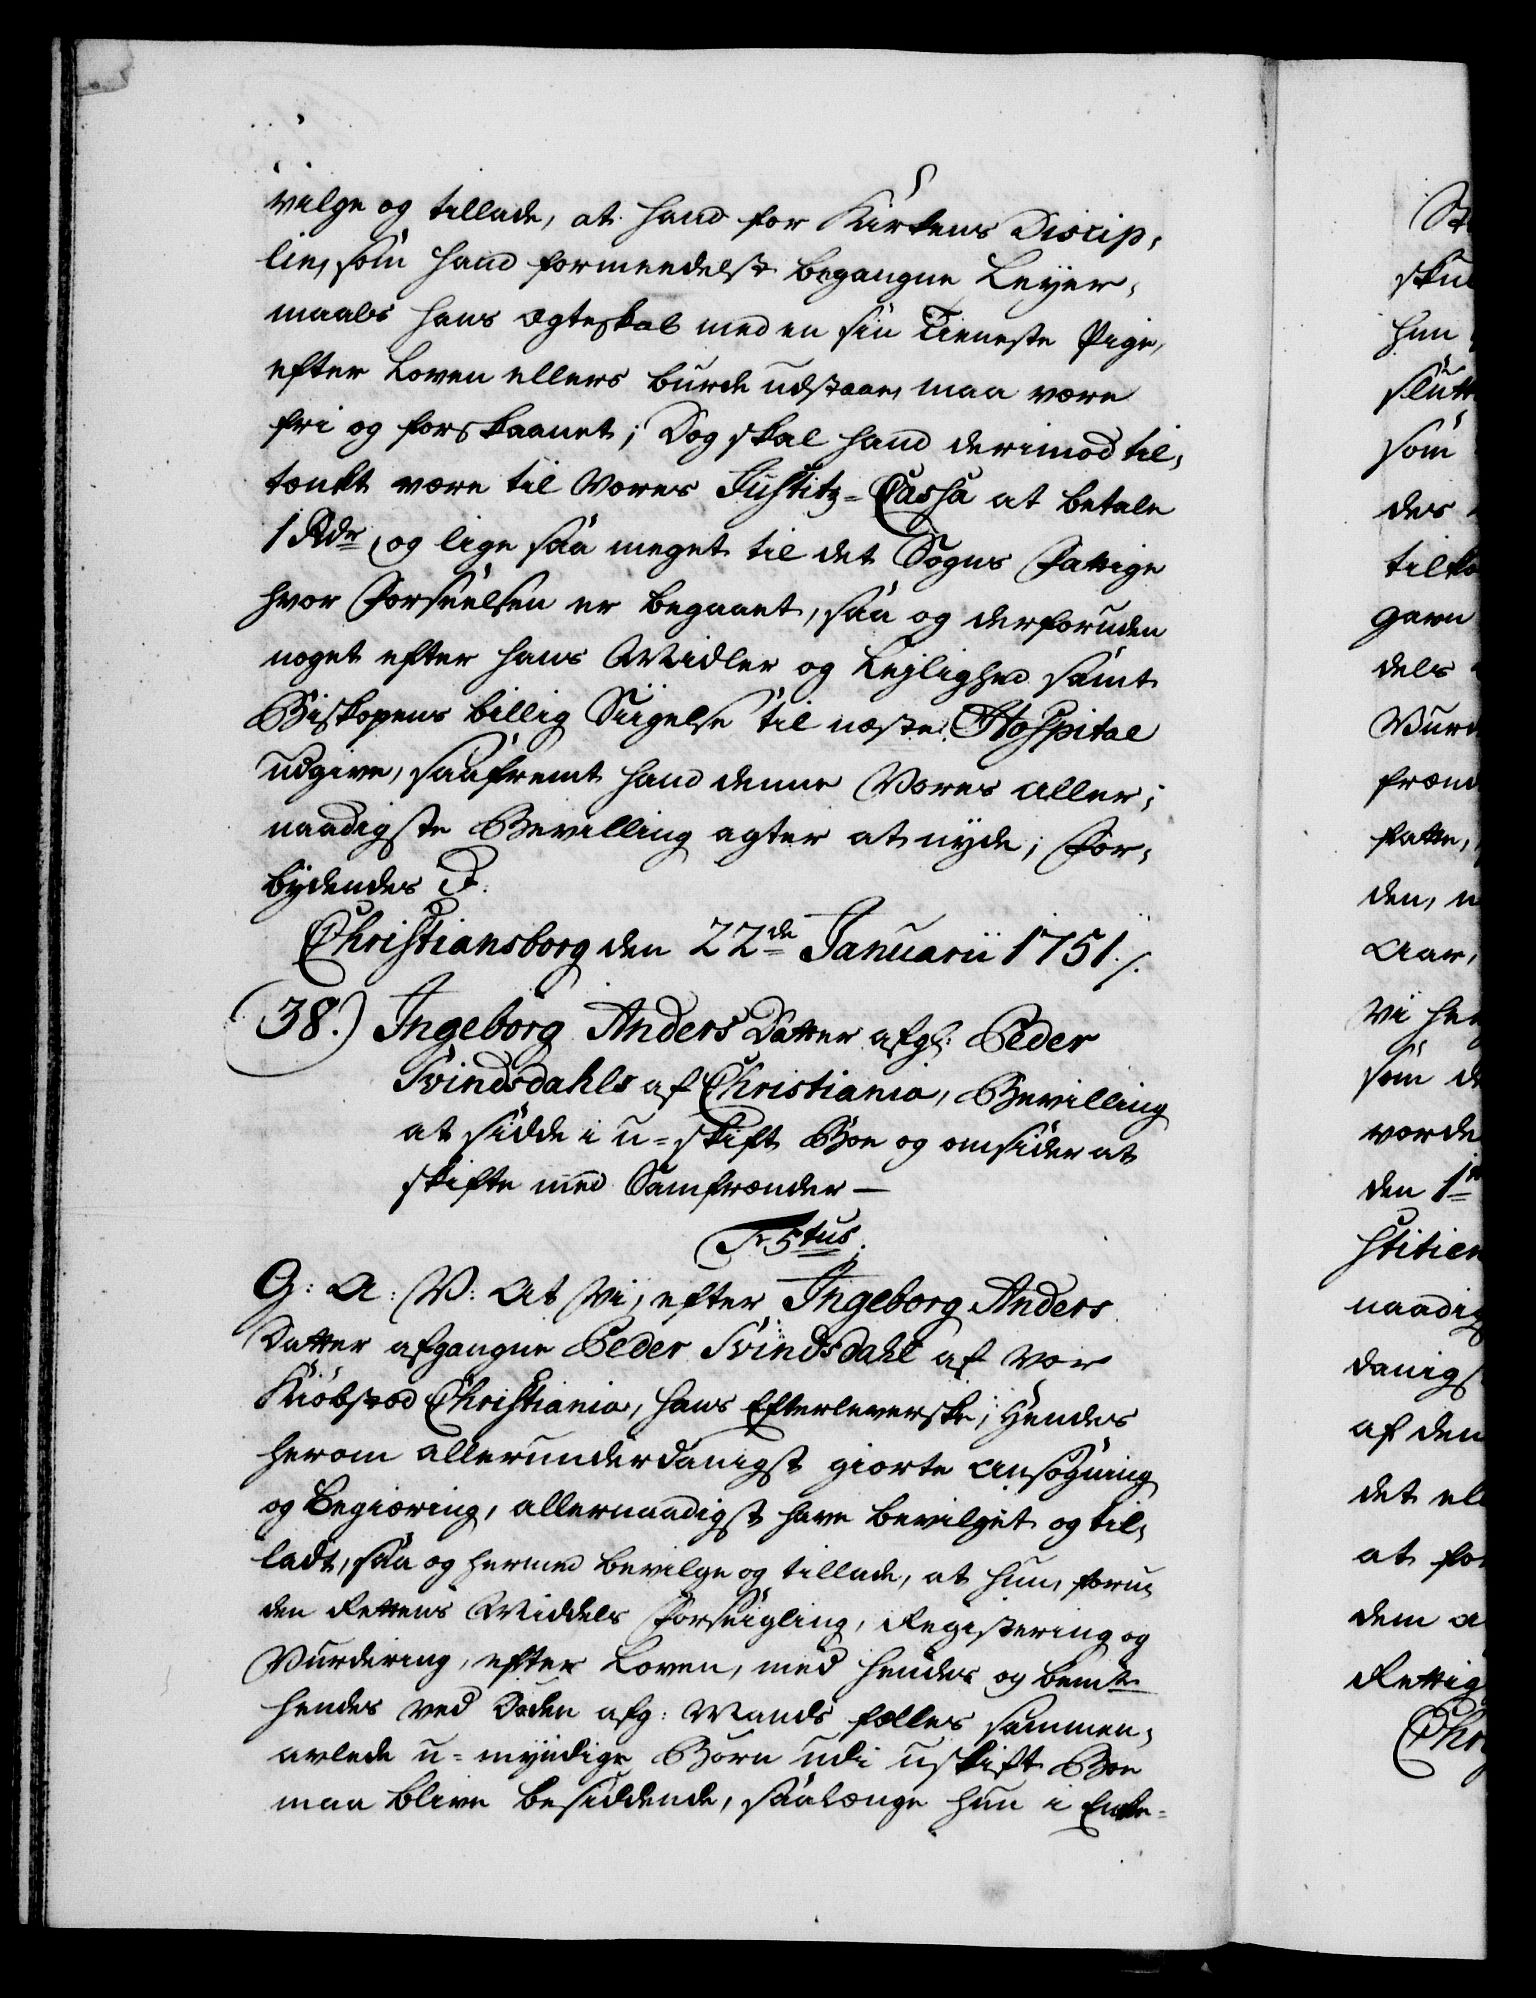 vilge og tillade, at hand for Kirkens Discip-
lin, som hand formeedelst begangne Leyer-
maals hans Ægteskab med en sin Tieneste Pige,
efter Loven ellers burde udstaae, maa være
fri og forskaanet; Dog skal hand derimod til-
tænkt være til Vores Justitz-Cassa at betale
1 Rdr, og lige saa meget til det Sogns Fattige
hvor Forseelsen er begaaet, saa og derforuden
noget efter hans Midler og Lejlighed samt
Biskopens billig Siigelse til næste Hospital
udgive, saafremt hand denne Vores aller-
naadigste Bevilling agter at nyde; For-
bydendes &.
Christiansborg den 22de Januarii 1751./.
38.) Ingeborg Anders Datter afg: Peder
Svindsdahls af Christiania, Bevilling
at sidde i u-skift Boe og omsider at
skifte med Samfrænder—
Fr 5tus.
G: A: V: At Vi, efter Ingeborg Anders
Datter afgangne Peder Svindsdahl af Vor
Kiöbstæd Christiania, hans Efterleverske, Hendes
herom allerunderdanigst giorte Ansøgning
og Begiering, allernaadigst have bevilget og til-
ladt, saa og hermed bevilge og tillade, at hun, foru-
den Rettens Middels Forseigling, Registering og
Vurdering, efter Loven, med hendes og bemte
hendes ved Døden afg: Mands fælles sammen-
avlede u-myndige Børn udi uskift Boe
maa blive besiddende, saalænge hun i Enke-
St
skul
hun
slutt
som
des
tilko
gavn
dels
Vurd
frænd
fatte,
den, n
Aar,
Vi her
som d
vorde
den 1te
stitien
naadig
danigs
af den
det ell
at for
dem a
Rettig
Chri